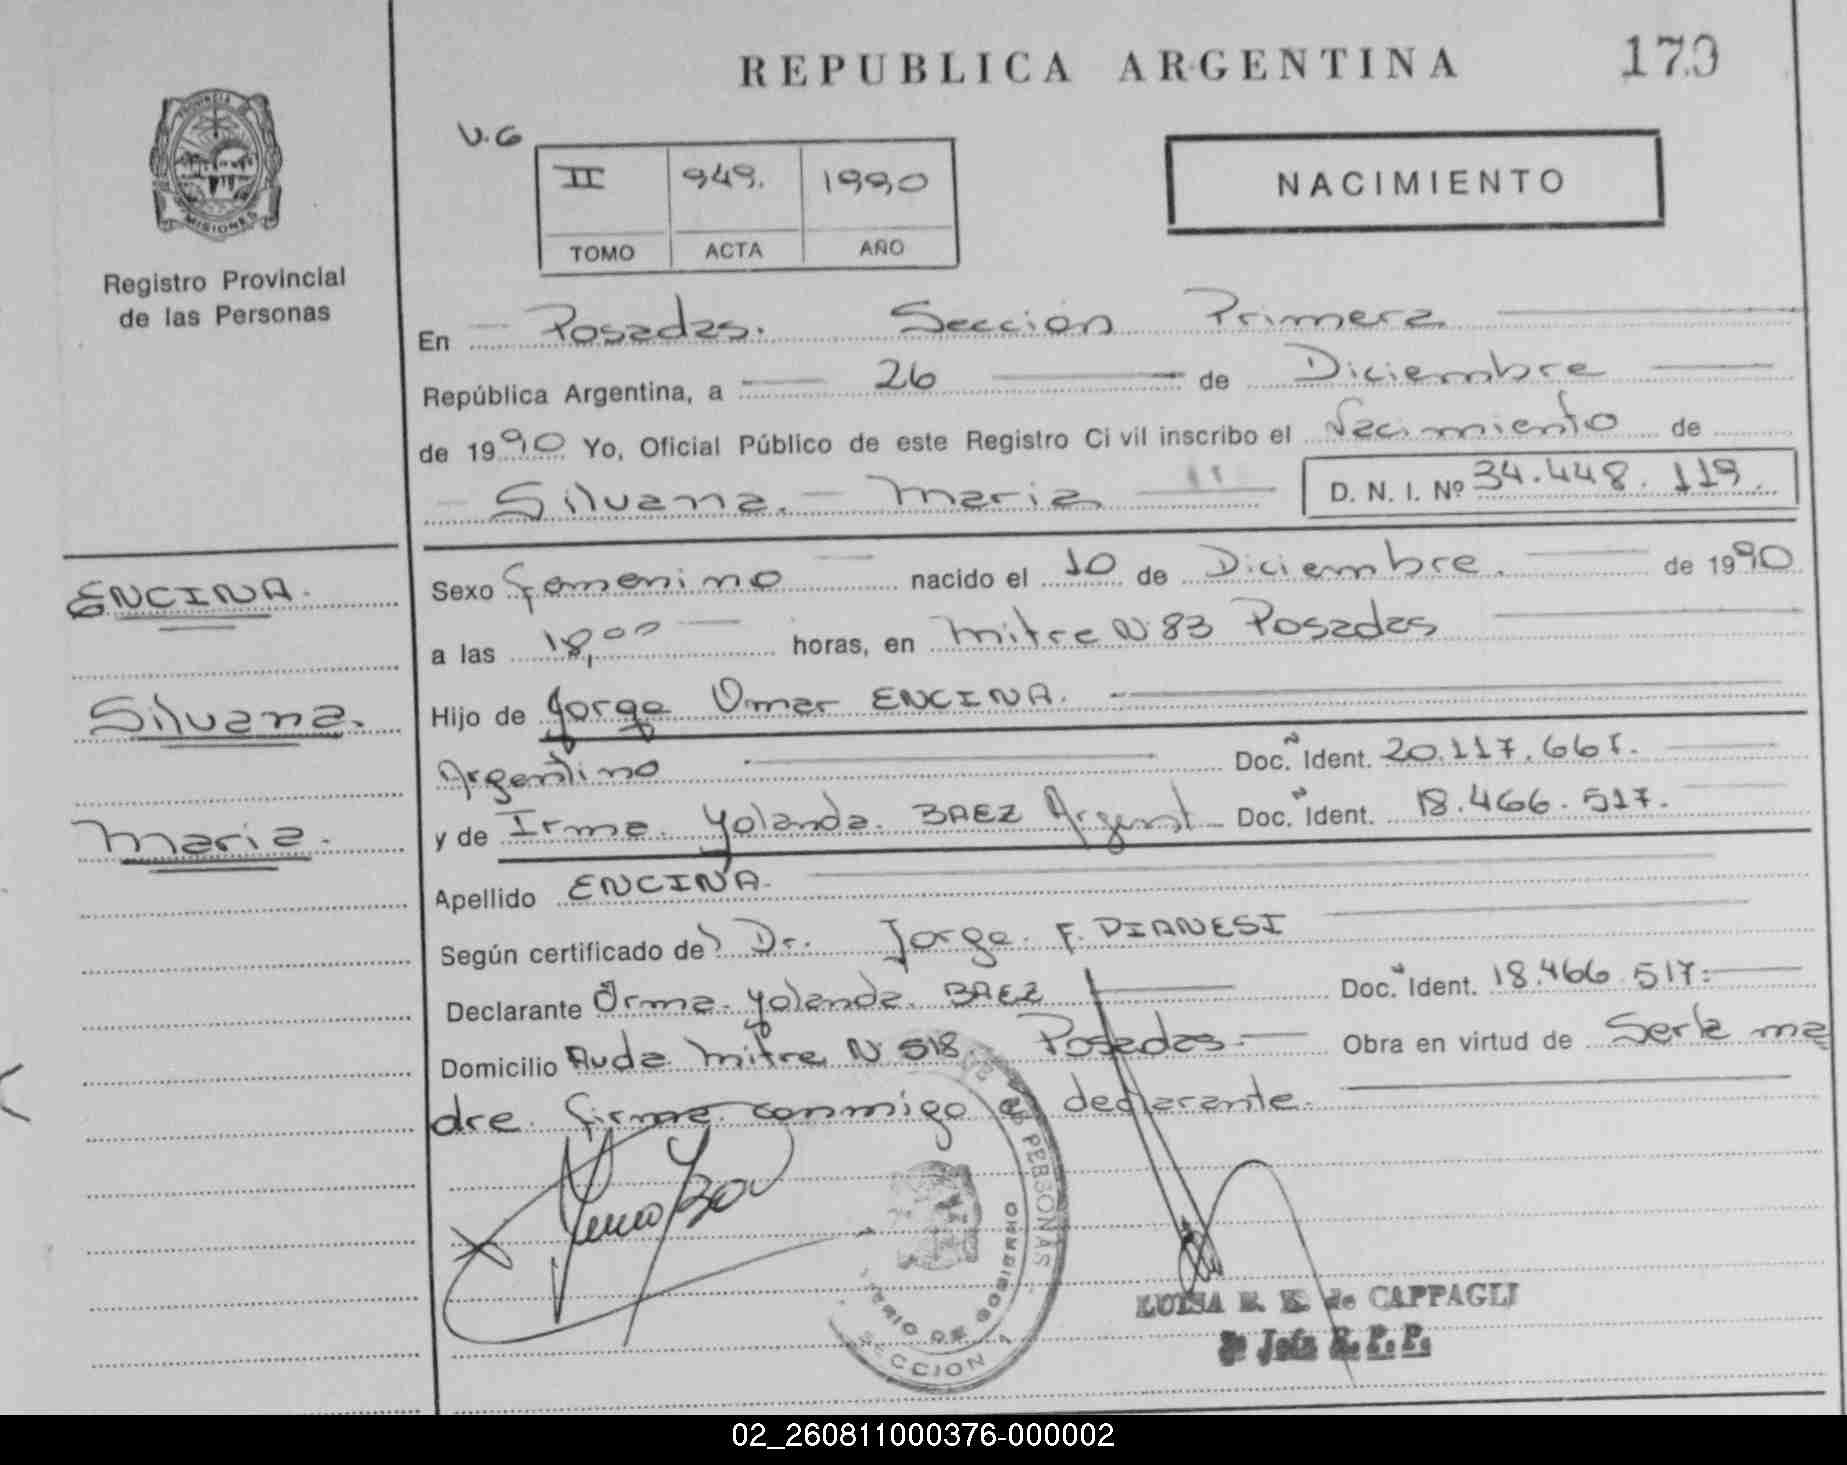 REPUBLICA ARGENTINA
PROVINCIA DE
MISIONES
Registro Provincial
de las Personas
V.G
II 949. 1990
TOMO ACTA AÑO
NACIMIENTO
En Posadas. Sección Primera
República Argentina, a 26 de Diciembre
de 1990 Yo, Oficial Público de este Registro Civil inscribo el Nacimiento de
Silvana. Maria D. N. I. Nº 34.448.119.
ENCINA.
Silvana.
Maria.
Sexo femenino nacido el 10 de Diciembre. de 1990
a las 18,00 horas, en Mitre N 83 Posadas
Hijo de Jorge Omar ENCINA.
Argentino Doc. Ident. 20.117.661.
y de Irma. Yolanda. BAEZ Argent Doc. Ident. 18.466.517.
Apellido ENCINA.
Según certificado de Dr. Jorge. F. DIANESI
Declarante Irma. Yolanda. BAEZ Doc. Ident. 18.466.517.
Domicilio Avda Mitre N 518. Posadas. Obra en virtud de Serla ma
dre. firma conmigo declarante.
PERSONAS
DE GOBIERNO
SECCION 1
de CAPPAGLI
Jefa R. P. P.
02_260811000376-000002